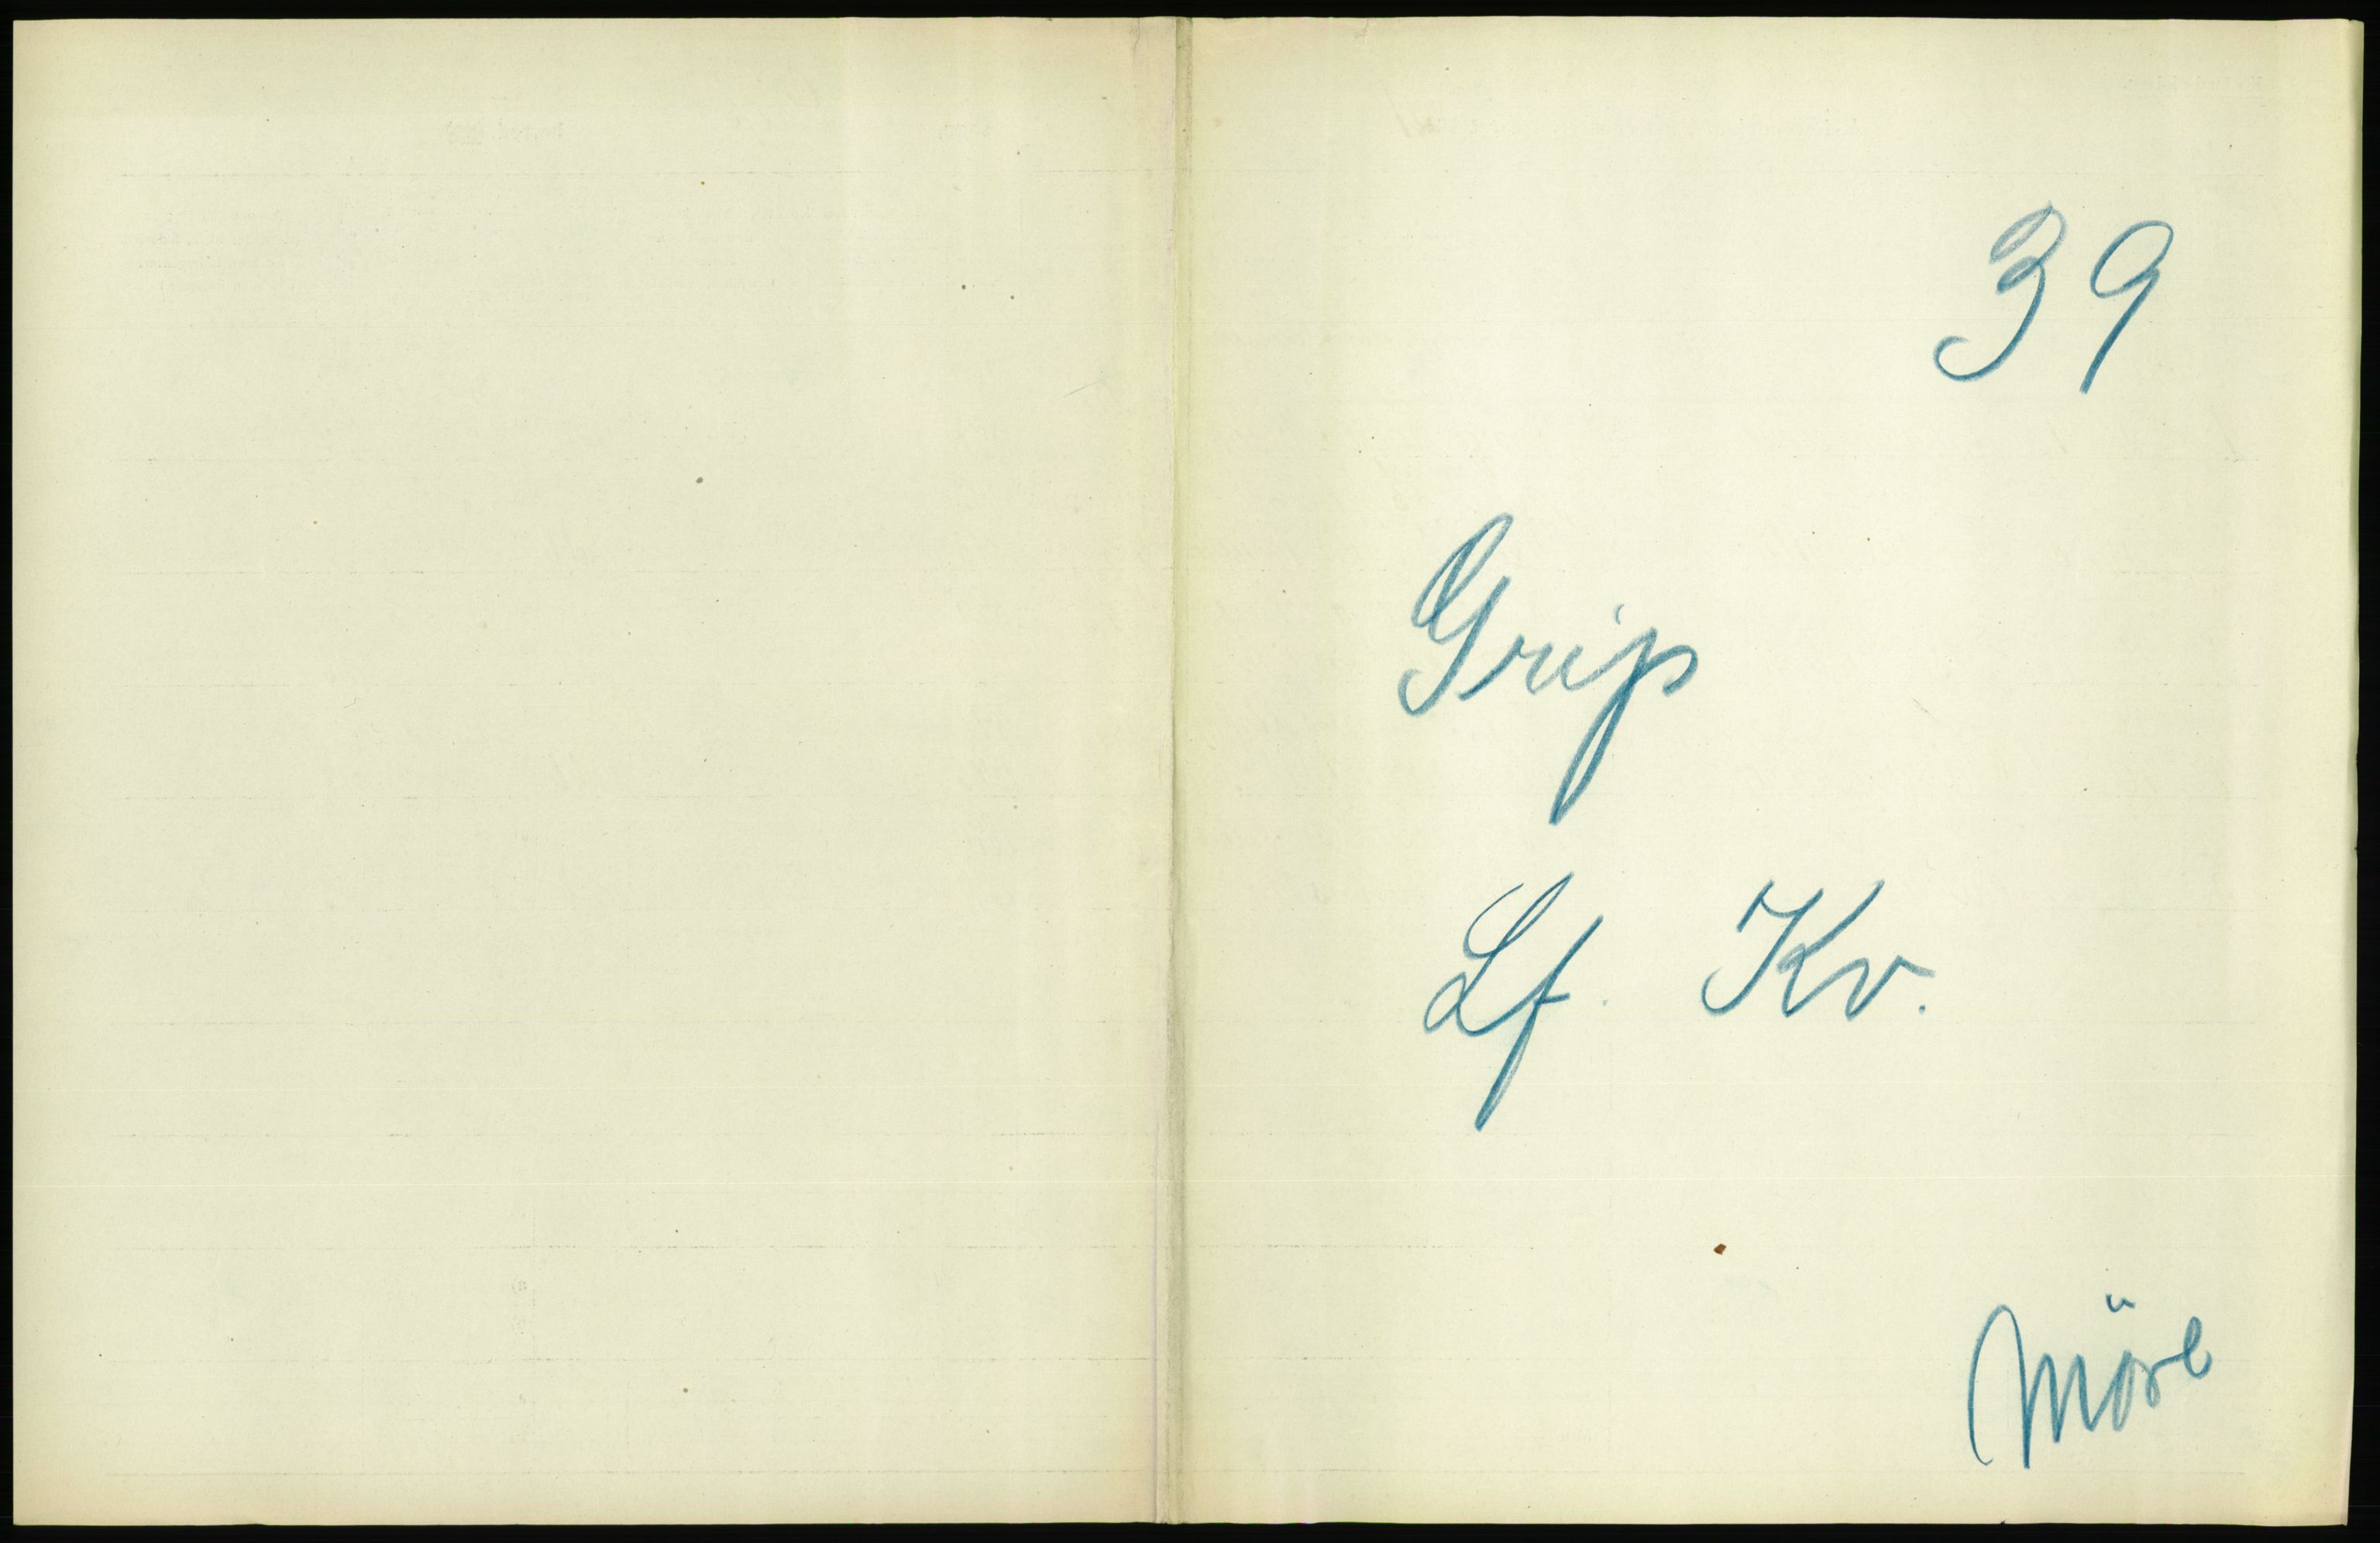 39
Grip
Lf. Kv.
Möre